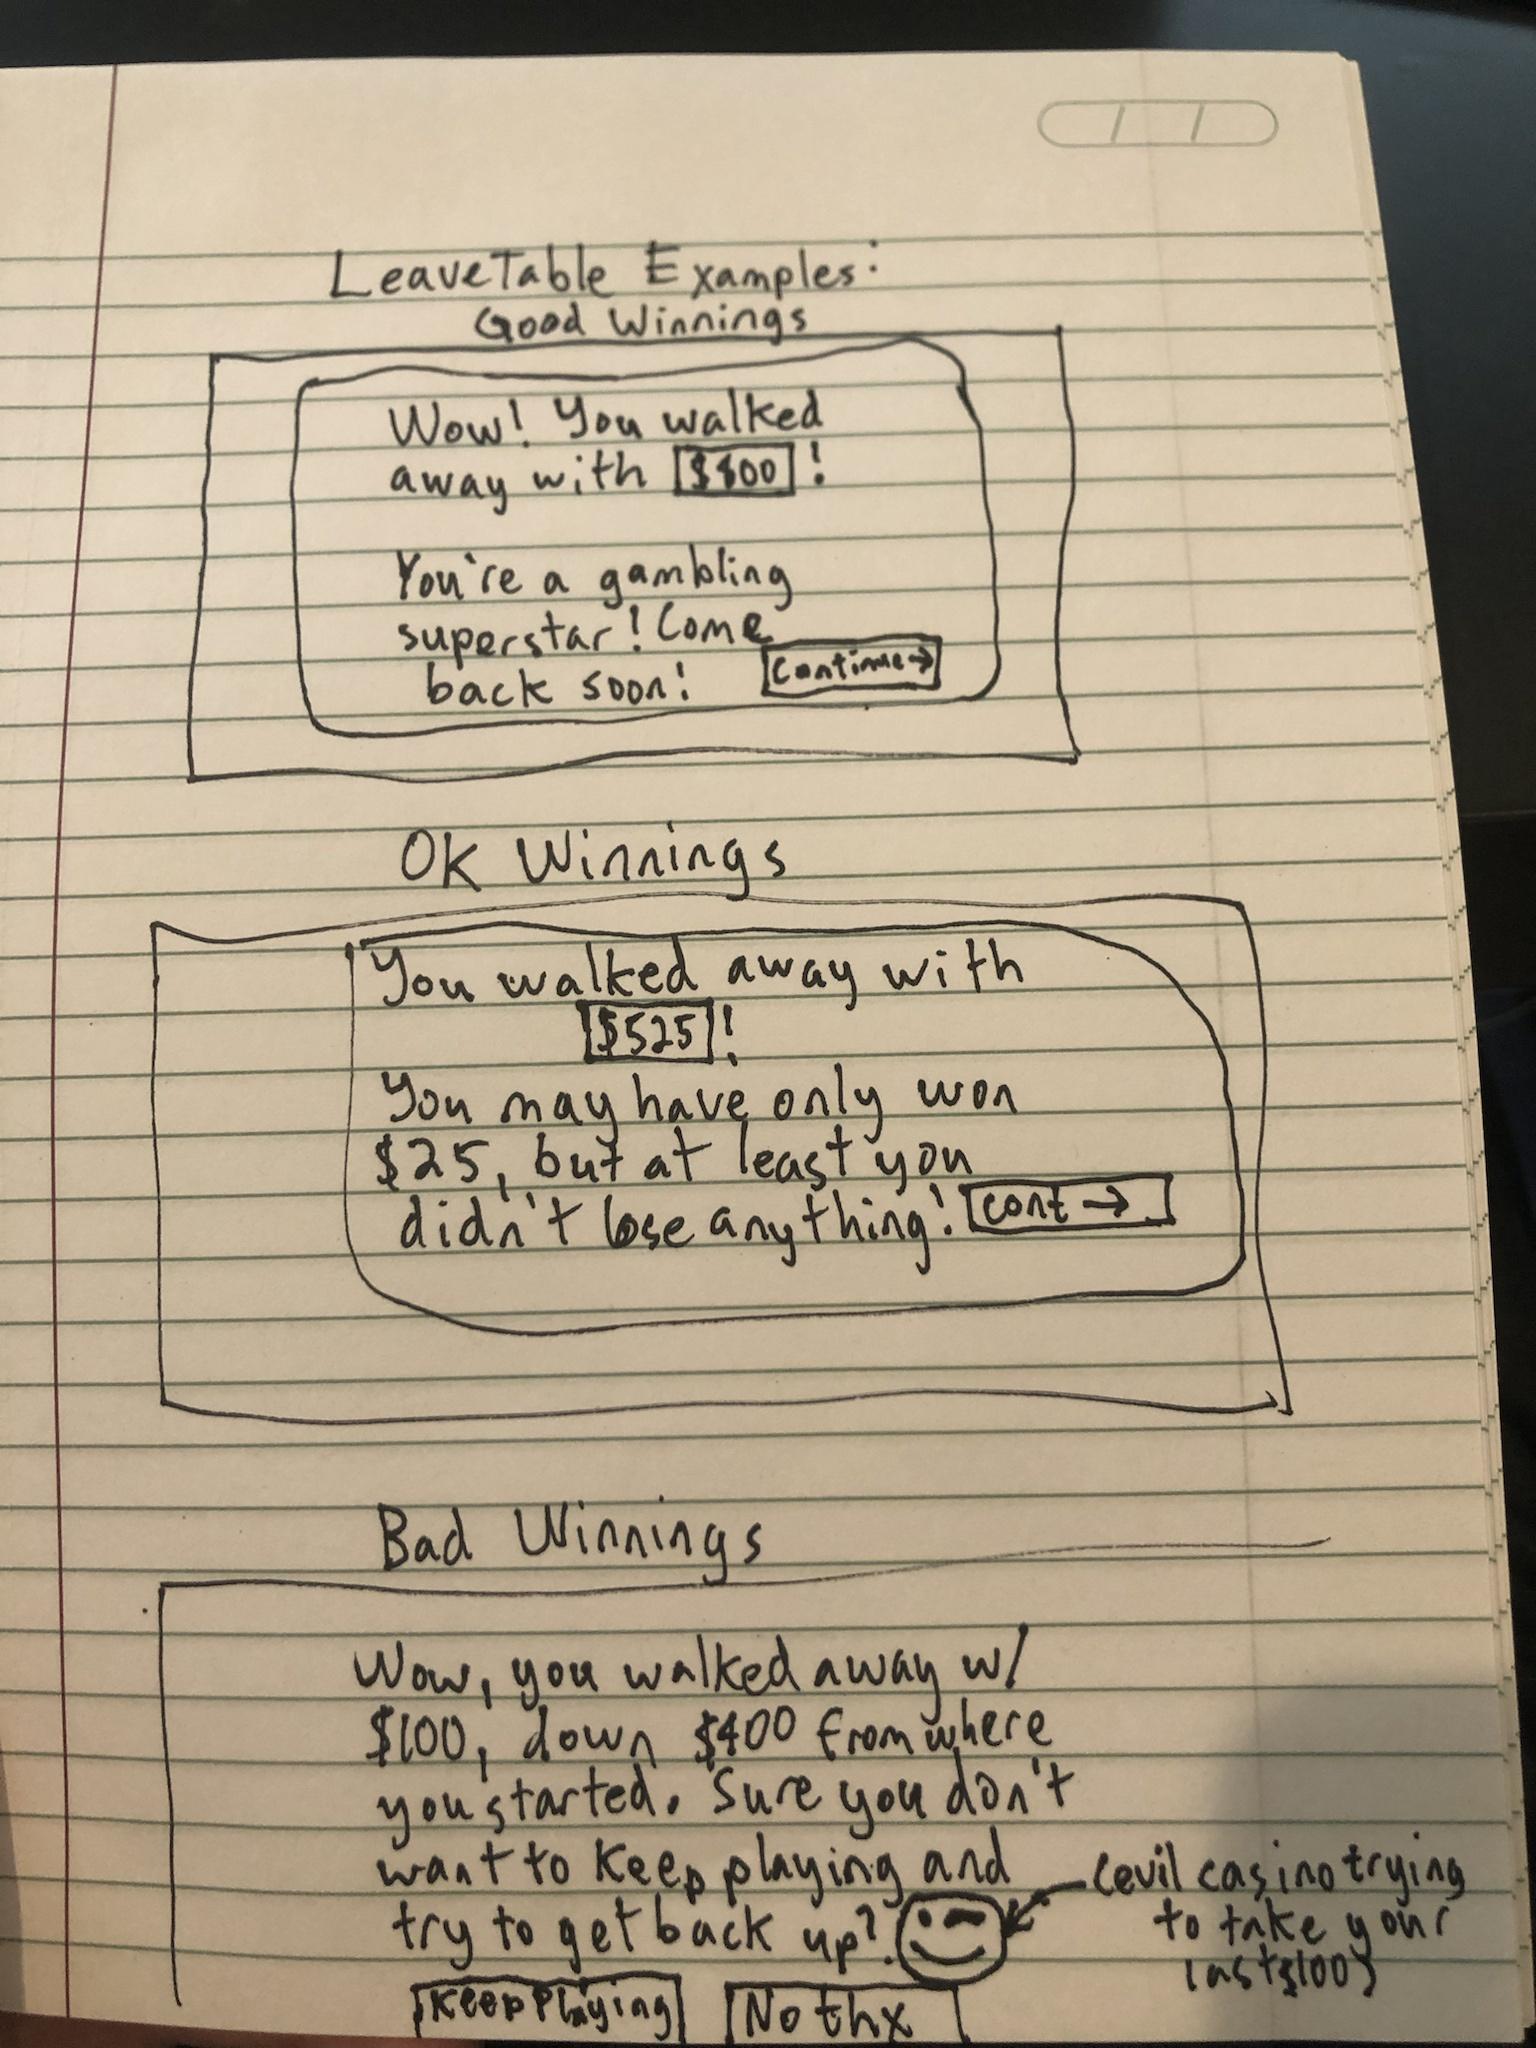 LeaveTable Examples:
Good Winnings
Wow! You walked
away with $800!
You're a gambling
superstar! Come
back soon!
Continue→
OK Winnings
You walked away with
$525!
You may have only won
$25, but at least you
didn't lose anything!
Cont →
Bad Winnings
Wow, you walked away w/
$100, down $400 from where
you started. Sure you don't
want to keep playing and
try to get back up?
(evil casino trying
to take your
last $100)
Keep Playing
No thx